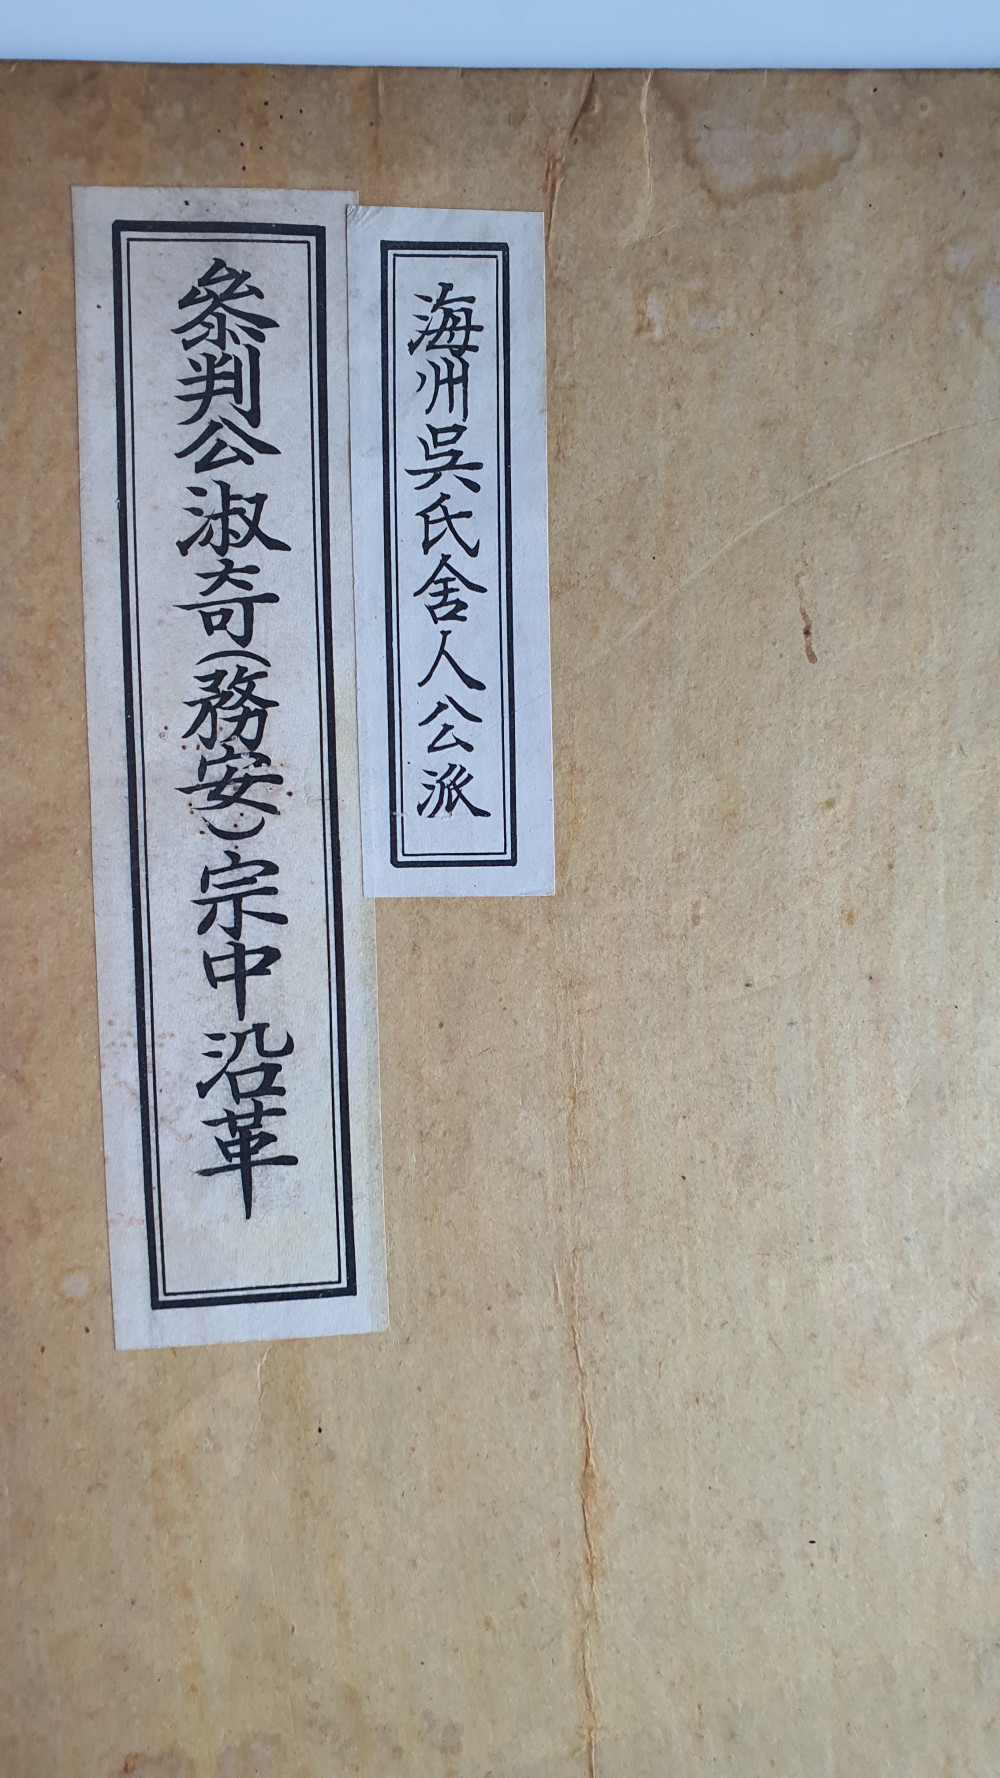 海州吳氏舍人公派
參判公淑奇(務安)宗中沿革